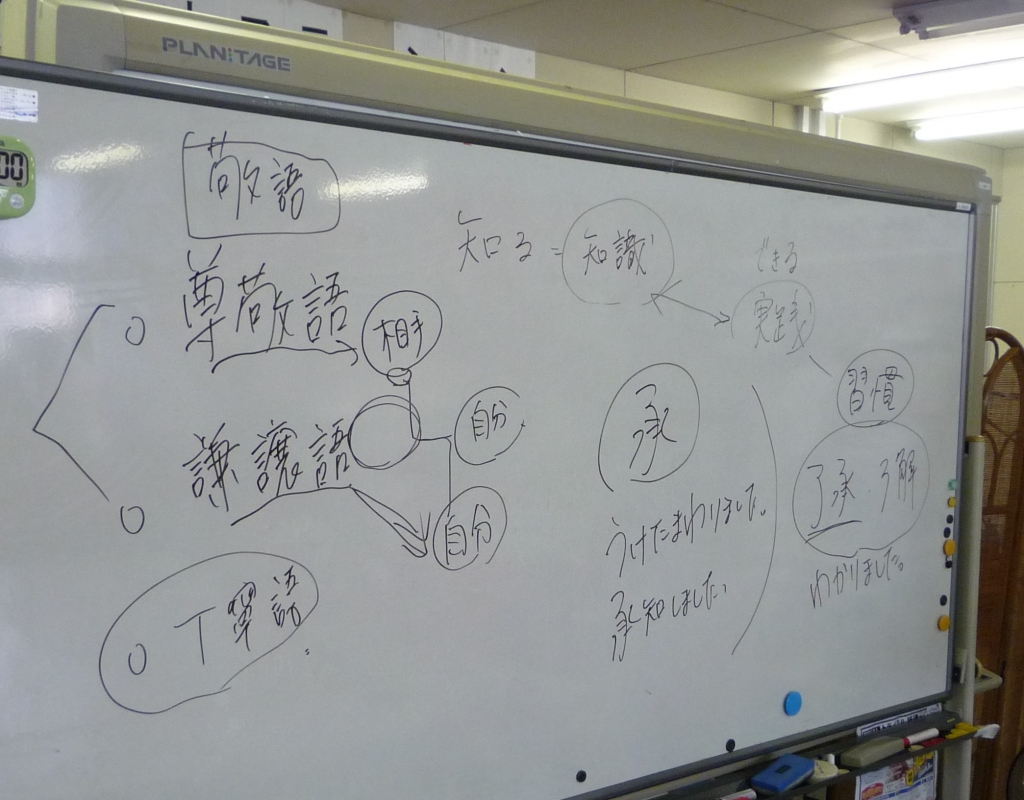 PLANiTAGE
00
敬語
尊敬語
相手
謙譲語
自分
自分
丁寧語
知る = 知識
できる
実践
習慣
承
うけたまわりました。
承知しました。
了承・了解
わかりました。